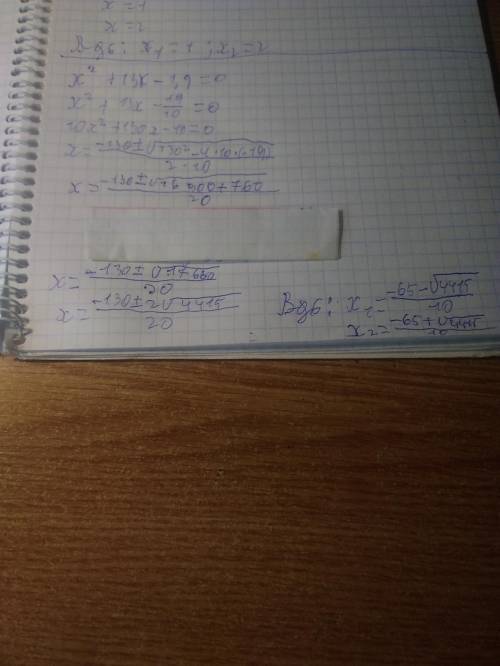 x = 1
x = 2
Вдб: x₁ = 1 ; x₂ = 2
x² + 13x - 1,9 = 0
x² + 13x - 19/10 = 0
10x² + 130x - 19 = 0
x = (-130 ± √(130² - 4·10·(-19)))/(2·10)
x = (-130 ± √(16 900 + 760))/20
x = (-130 ± √17 660)/20
x = (-130 ± 2√4415)/20
Вдб: x₁ = (-65 - √4415)/10
x₂ = (-65 + √4415)/10